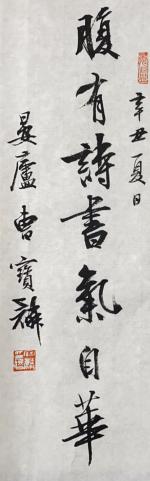 辛丑夏日
腹有詩書氣自華
晏廬曹寶麟